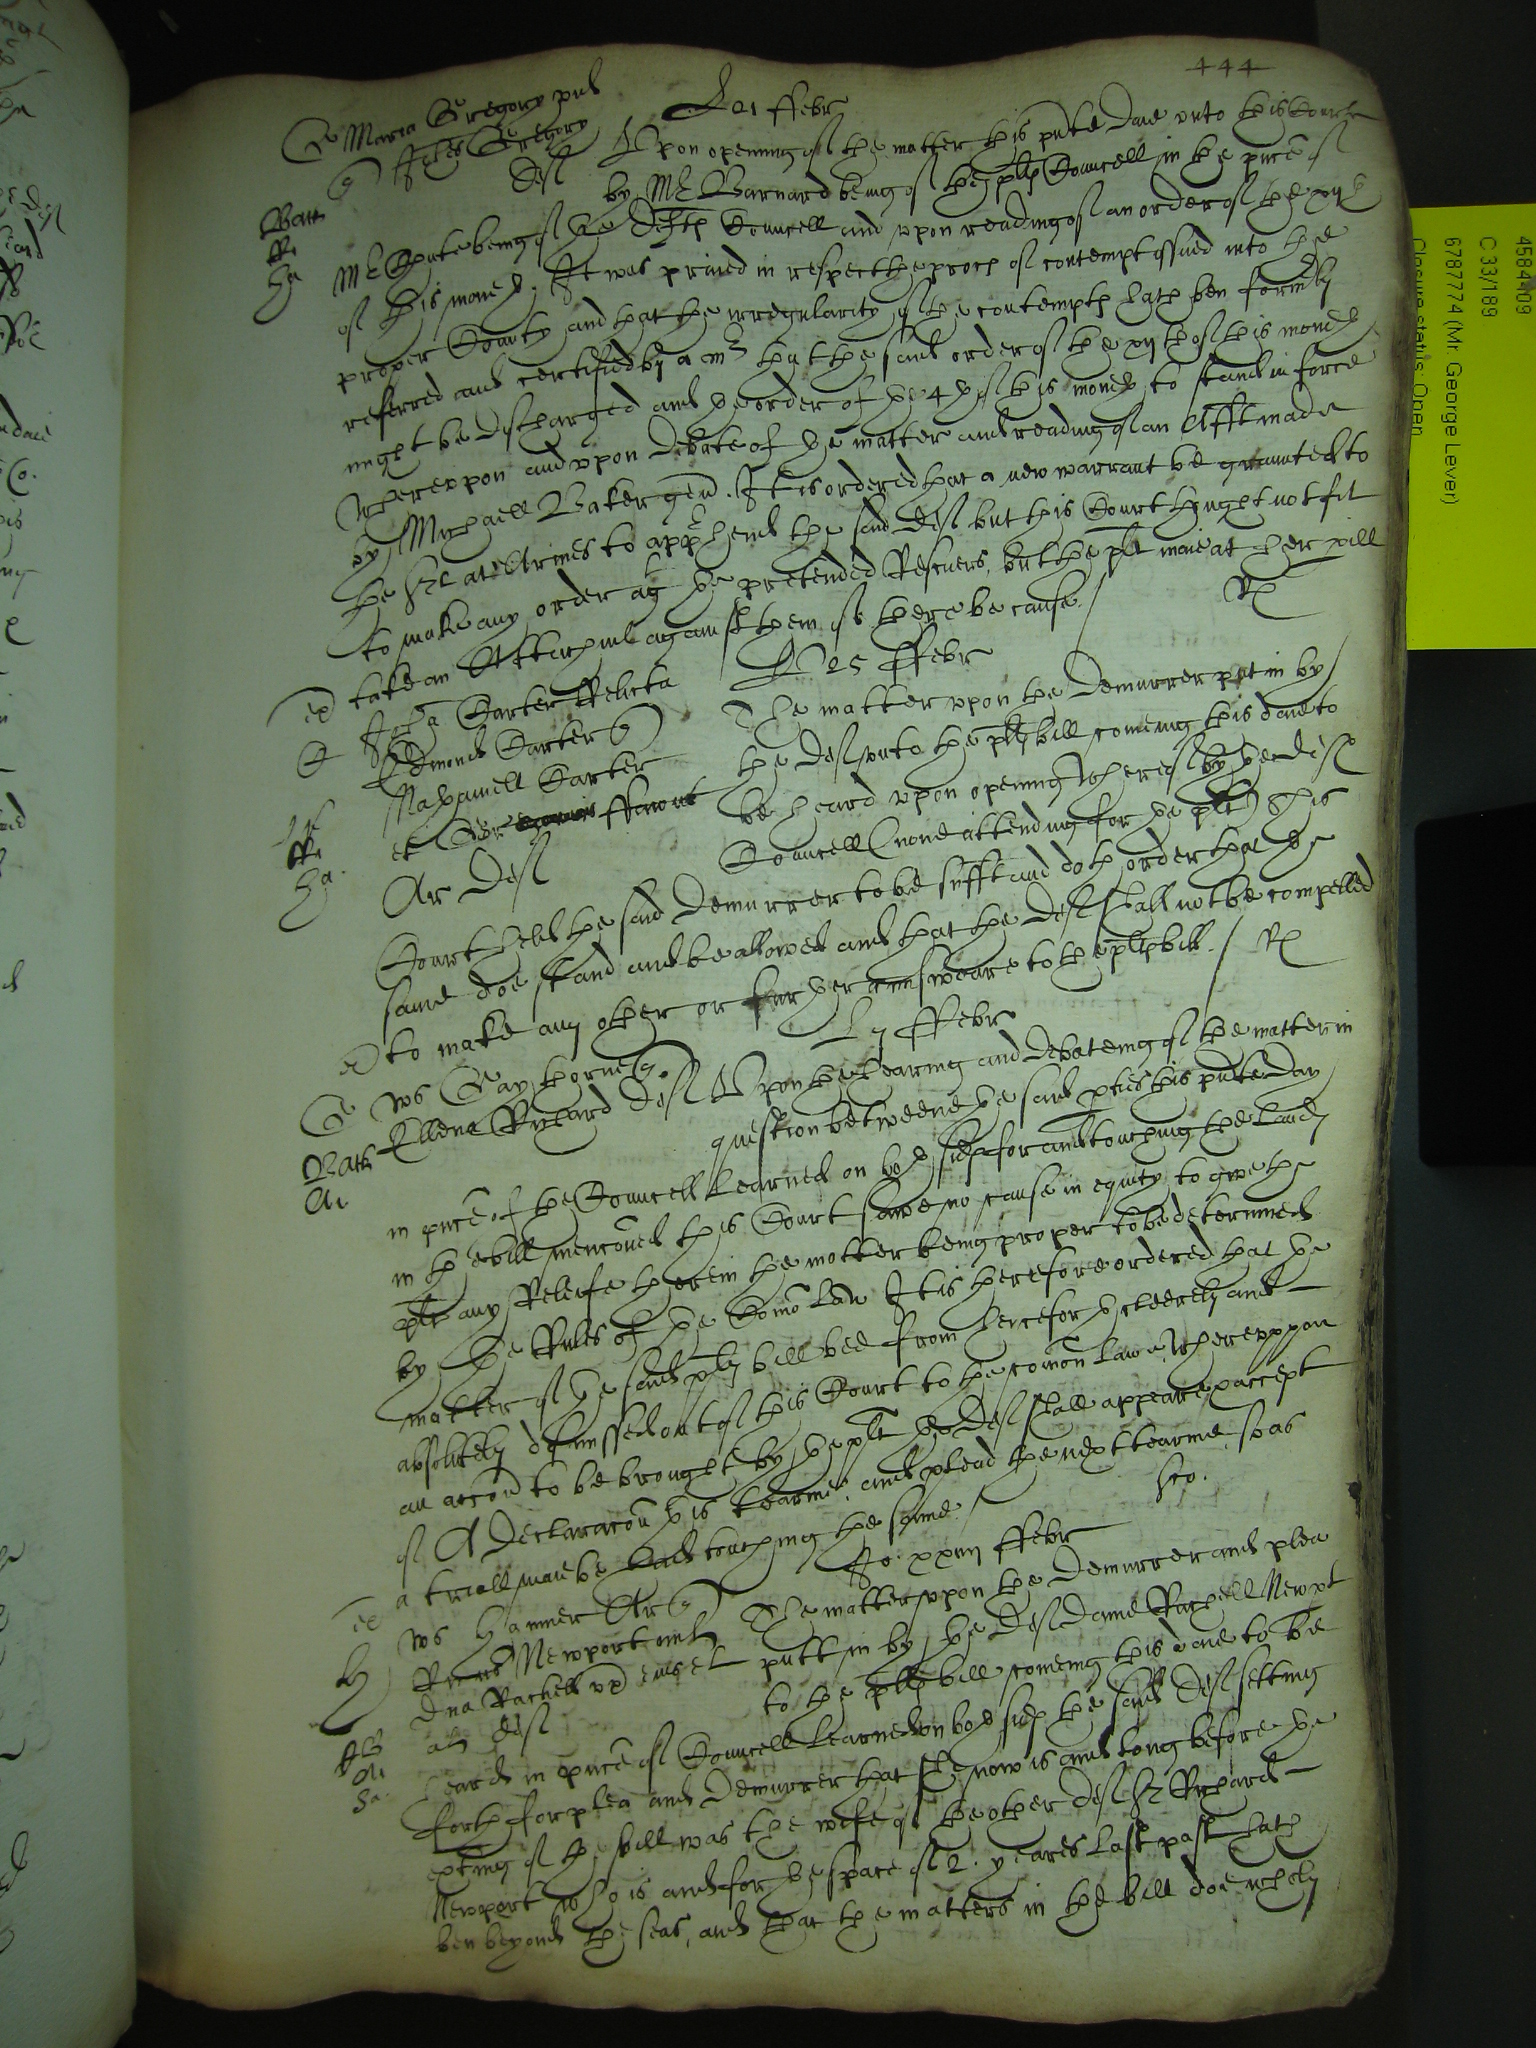 444
G Maria Gregory pul
Egid Gregory
Def
L 21 ffebr
Upon opening of the matter this pnte daie unto this Court
Bath
by Mr Barnard being of the plts Councell in the pnce of
Mr Chute being of the defts Councell and upon reading of an order of the xijth
Ha
of this moneth. It was praied in respect the proces of contempt issued into the
proper County and that the irregularity of the contempts hath ben formly
referred and certified by a mr that the said order of the xijth of this moneth
might be discharged and the order of the 4th of this moneth to stand in force
Whereupon and upon debate of the matter and reading of an Afft made
by Michaell Baker gen. It is ordered that a new warrant be graunted to
the Srt at Armes to apphend the said Def but this Court thought not fit
to make any order agt the pretended Rescuers, but the plt maie at her pill
take an Attachmt against them if there be cause /
Rl
L 25 ffebr
C
Joha Carter ffelicia
Edmond Carter
Nathaniell Carter
et Geor ffarour
Ar Def
Ha.
The matter upon the Demurrer put in by
the Def unto the plts bill comeing this daie to
be heard upon opening thereof by the def
Councell (none attending for the plt) This
Court held the said Demurrer to be sufft and doth order that the
same doe stand and be allowed and that the Def shall not be compelled
to make any other or further answeare to the plts bill. /
Rl
L 7 ffebr
G
Ws Gay
Ellena Richard Def
Bath
Ai
Upon the hearing and debateing of the matter in
question betweene the said pties this pnte Day
in pnce of the Councell Learned on both sides for and touching the Lands
in the bill menconed this Court sawe no cause in equity to give the
plt any Releife therein the matter being proper to be determined
by the Rules of the Comon Law It is therefore ordered that the
matter of the said plts bill bee from henceforth cleerely and
absolutely dismissed out of this Court to the comon lawe, Whereuppon
an accon to be brought by the plt the Def shall appeare & accept
of A Declaracon this tearme, and plead the next tearme, so as
a triall maie be had touching the same /
Sco.
Jo. xxiij ffebr
H
Ws Hanmer Ar
Newport mil
Dna Rachell ux eius et
al Def
Ai
Ha.
The matter upon the Demurrer and plea
putt in by the Def Dame Rachell Newpt
to the plts bill comeing this daie to be
heard in pnce of Councell Learned on both sides the said Def setting
forth for plea and Demurrer that she now is and long before the
exting of the bill was the wife of the other Def Sr Richard
Newport who is and for the space of 2. yeares last past hath
ben beyond the seas, and that the matters in the bill doe
4584409
C 33/189
6787774 (Mr. George Lever)
Closure status: Open